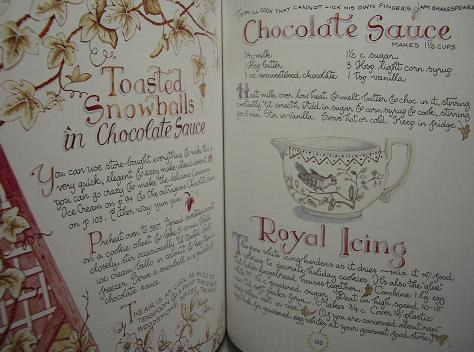 Toasted
Snowballs
in Chocolate Sauce
You can use store-bought everything & make this a
very quick, elegant & easy make-ahead dessert
you can go crazy & make the delicious Cinnamon
Ice Cream on p. 94 & the outrageous Chocolate Sauce
on p 103. Either way, yum yum
Preheat oven to 350°. Spread coconut
on a cookie sheet & bake
closely, stir occasionally, 'til toasted. Roll
ice cream balls in coconut & keep them in
freezer. Serve a snowball in a puddle of
chocolate sauce.
THE AIR IS AS COOL AS
'TIS AN ILL COOK THAT CANNOT LICK HIS OWN FINGERS. WM. SHAKESPEARE
Chocolate Sauce
MAKES 1½ CUPS
¾ c. milk 1½ c. sugar
1 Tbsp. butter 3 Tbsp. light corn syrup
3 oz. unsweetened chocolate 1 tsp. vanilla
Heat milk over low heat & melt butter & choc. in it, stirring
constantly 'til smooth. Add in sugar & corn syrup & cook, stirring
for 5 min. Stir in vanilla. Serve hot or cold. Keep in fridge.
Royal Icing
This pure white icing hardens as it dries ~ mix it w/ food
coloring to decorate holiday cookies. It's also the "glue"
that holds gingerbread houses together. Combine 1 lg. egg
white w/ powdered sugar. Beat on high speed 10-15
min. 'til soft peaks form. Makes ¾ c. Cover w/ plastic
when not in use. (If you are concerned about raw
eggs, go for powdered egg whites at your gourmet food store.)
103